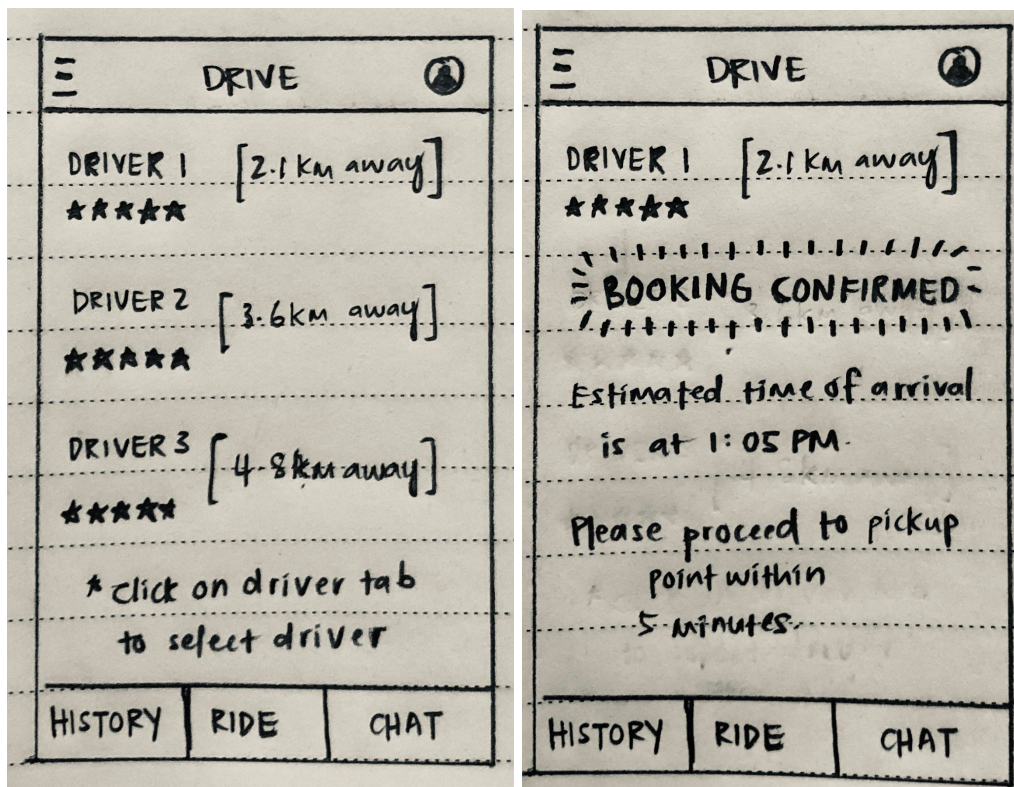 DRIVE
DRIVER 1 [2.1 km away]
★★★★★
DRIVER 2 [3.6 km away]
★★★★★
DRIVER 3 [4.8 km away]
★★★★★
* click on driver tab
to select driver
HISTORY RIDE CHAT
DRIVE
DRIVER 1 [2.1 km away]
★★★★★
BOOKING CONFIRMED
Estimated time of arrival
is at 1:05 PM.
Please proceed to pickup
point within
5 minutes.
HISTORY RIDE CHAT